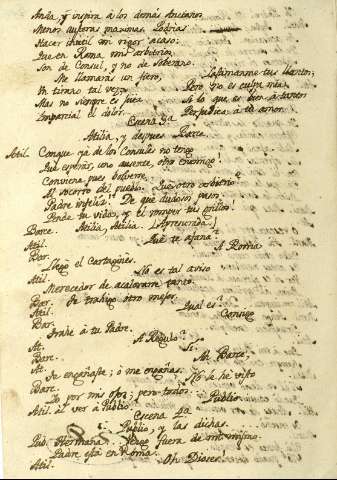 Anda, y inspira à los demás Ancianos
Menos austeras maximas. Podrias
Hacer inutil mi rigor acaso;
Que en Roma mis arbitrios
Son de Consul, y no de Soberano.
Me llamarás un fiero,
Un tirano tal vez;
Mas no siempre es juez
Imparcial el dolor.
Lastimanme tus llantos;
Pero no es culpa mia,
Si lo que es bien à tantos
Perjudica à tu amor.
Escena 3ª
Atilia, y despues Barce.
Atil. Conque yà de los Consules no tengo
Que esperar, uno ausente, otro enemigo!
Conviene pues bolverse
Al socorro del pueblo. Que otro arbitrio?
Padre infeliz! De que dudosos pasos
Pende tu vida, y el romper tus grillos!
Barce. Atilia, Atilia (Apresurada)
Atil. Que te afana?
Bar. A Roma
Llegó el Cartaginés.
Atil. No es tal aviso
Merecedor de acalorarte tanto.
Bar. Te traigo otro mejor.
Atil. Qual es?
Bar. Consigo
Trahe à tu Padre.
At. A Régulo?
Bar. Si.
At. Ah Barce,
Te engañaste, ò me engañas.
Barc. No le hé visto
Yo por mis ojos; pero todos
Atil. A ver à Publio. Publio
Escena 4ª
Publio, y las dichas.
Pub. Hermana. Vengo fuera de mi mismo.
Padre está en Roma.
Atil. Oh Dioses!